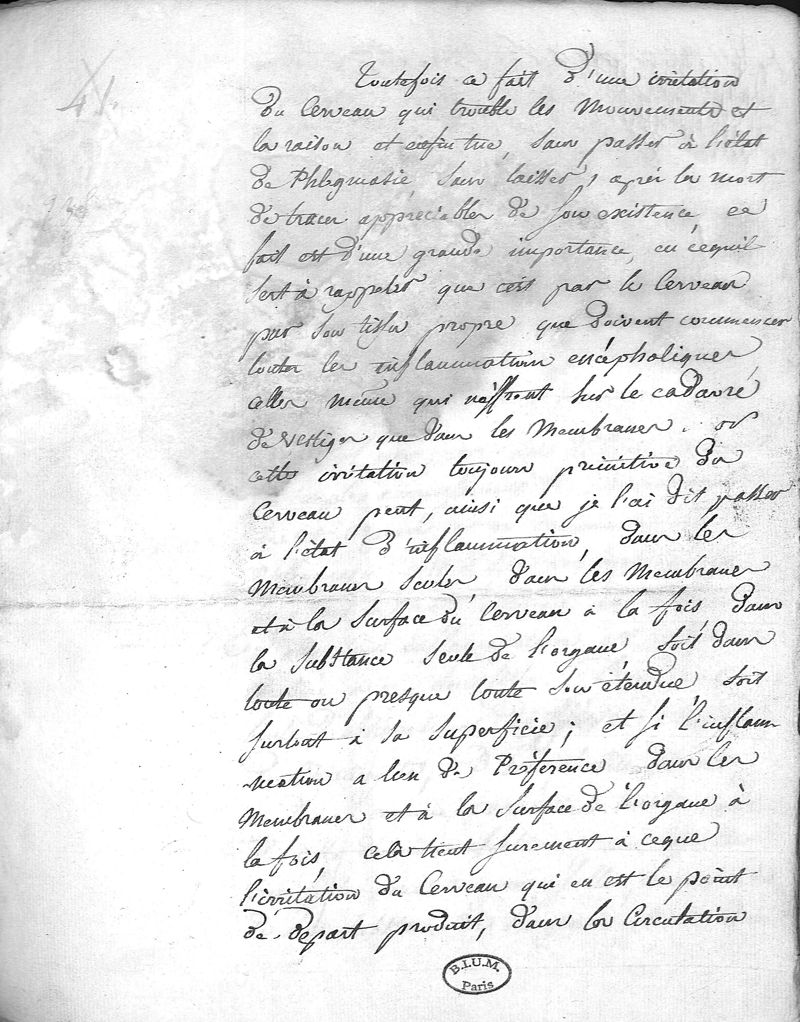 41.
Toutefois ce fait d'une irritation
du Cerveau qui trouble les Mouvements et
la raison et enfin tue, sans passer à l'état
de Phlegmasie, sans laisser, après la mort
de traces appréciables de son existence, ce
fait est d'une grande importance, en cequ'il
sert à rappeler que c'est par le Cerveau
par son tissu propre que doivent commencer
toutes les inflammations encéphaliques,
celles même qui n'offront sur le cadavre
de vestiges que dans les Membranes. or
cette irritation toujours primitive du
Cerveau peut, ainsi que je l'ai dit passer
à l'état d'inflammation, dans les
Membranes seules, dans les Membranes
et à la surface du Cerveau à la fois, dans
la substance seule de l'organe, soit dans
toute ou presque toute son étendue, soit
surtout à sa superficie; et si l'inflam-
mation a lieu de Préference dans les
Membranes et à la surface de l'organe à
la fois, cela tient surement à ceque
l'irritation du Cerveau qui en est le point
de départ produit, dans la Circulation
B.I.U.M.
Paris